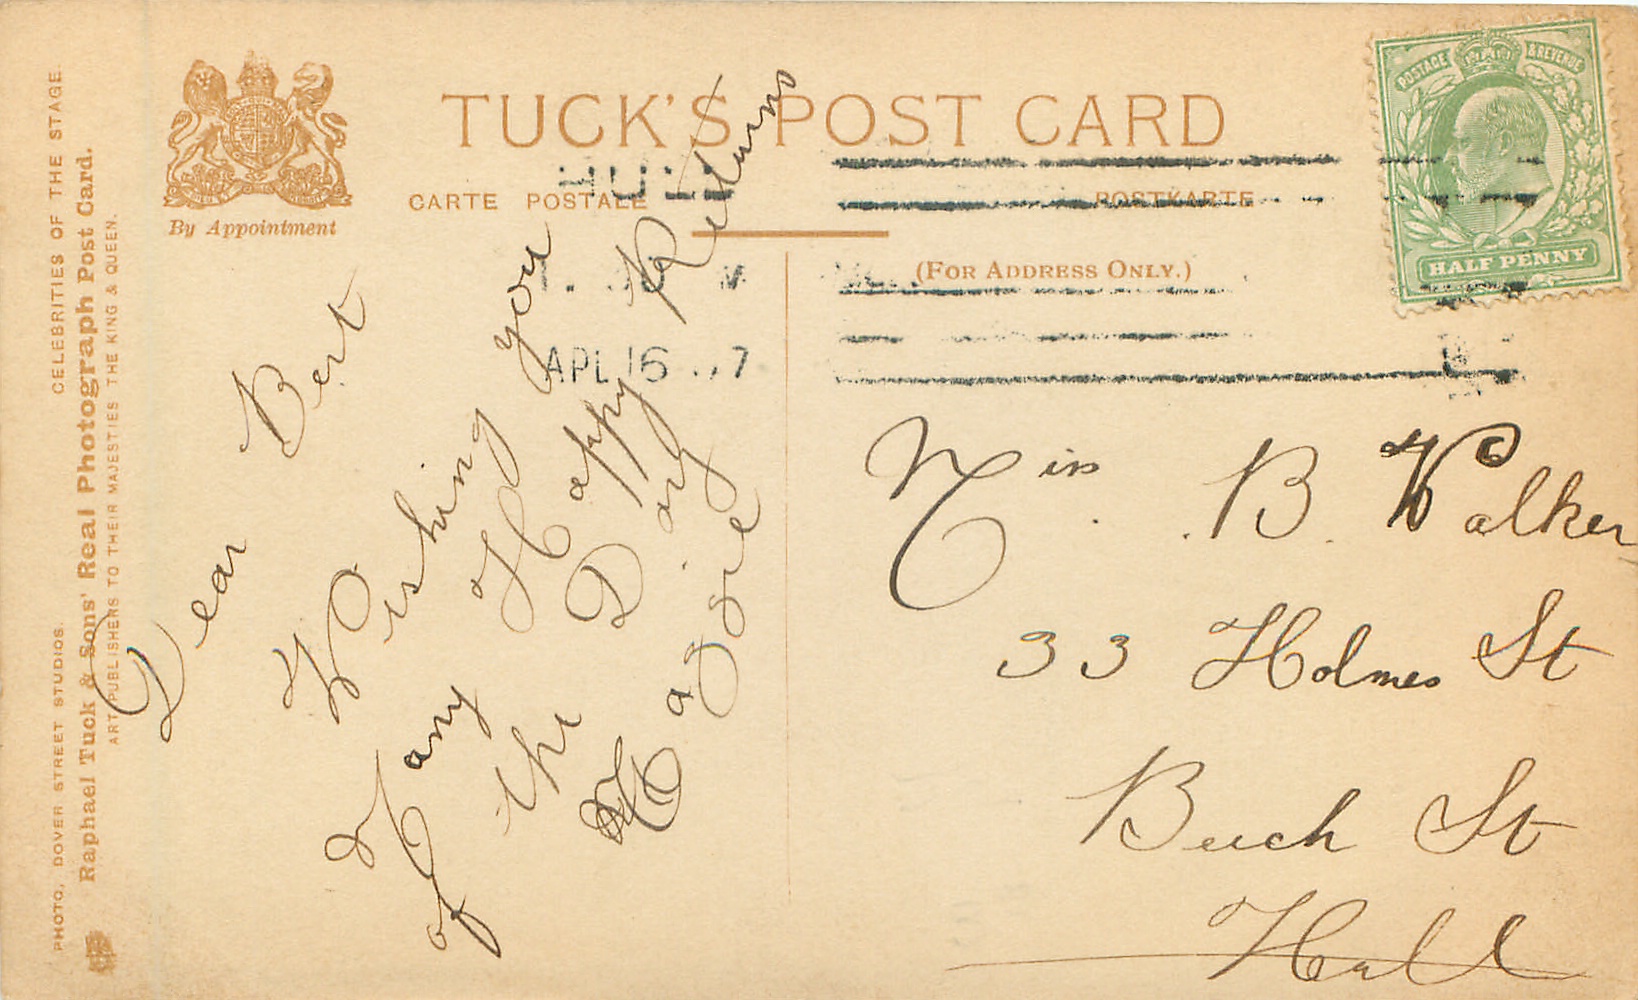 CELEBRITIES OF THE STAGE.
PHOTO, DOVER STREET STUDIOS.
Raphael Tuck & Sons' Real Photograph Post Card.
ART PUBLISHERS TO THEIR MAJESTIES THE KING & QUEEN.
By Appointment
TUCK'S POST CARD
CARTE POSTALE
POSTKARTE
(FOR ADDRESS ONLY.)
POSTAGE & REVENUE
HALF PENNY
HULL
APL 16 07
Dear Bert
Wishing you
Many Happy Returns
of the Day
Miss. B. Walker
33 Holmes St
Buch St
Hull